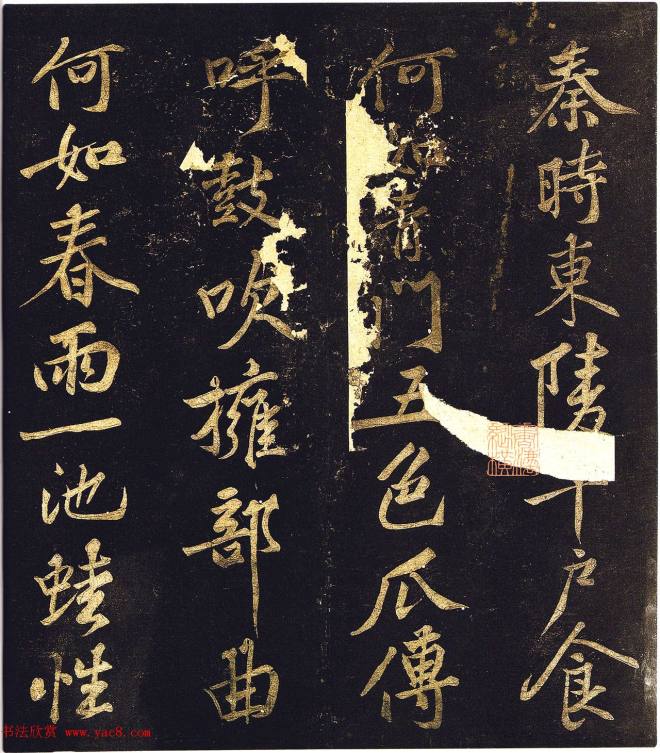 秦時東陵千户食
何如青門五色瓜傳
呼鼓吹擁部曲
何如春雨一池蛙性
书法欣赏 www.yac8.com